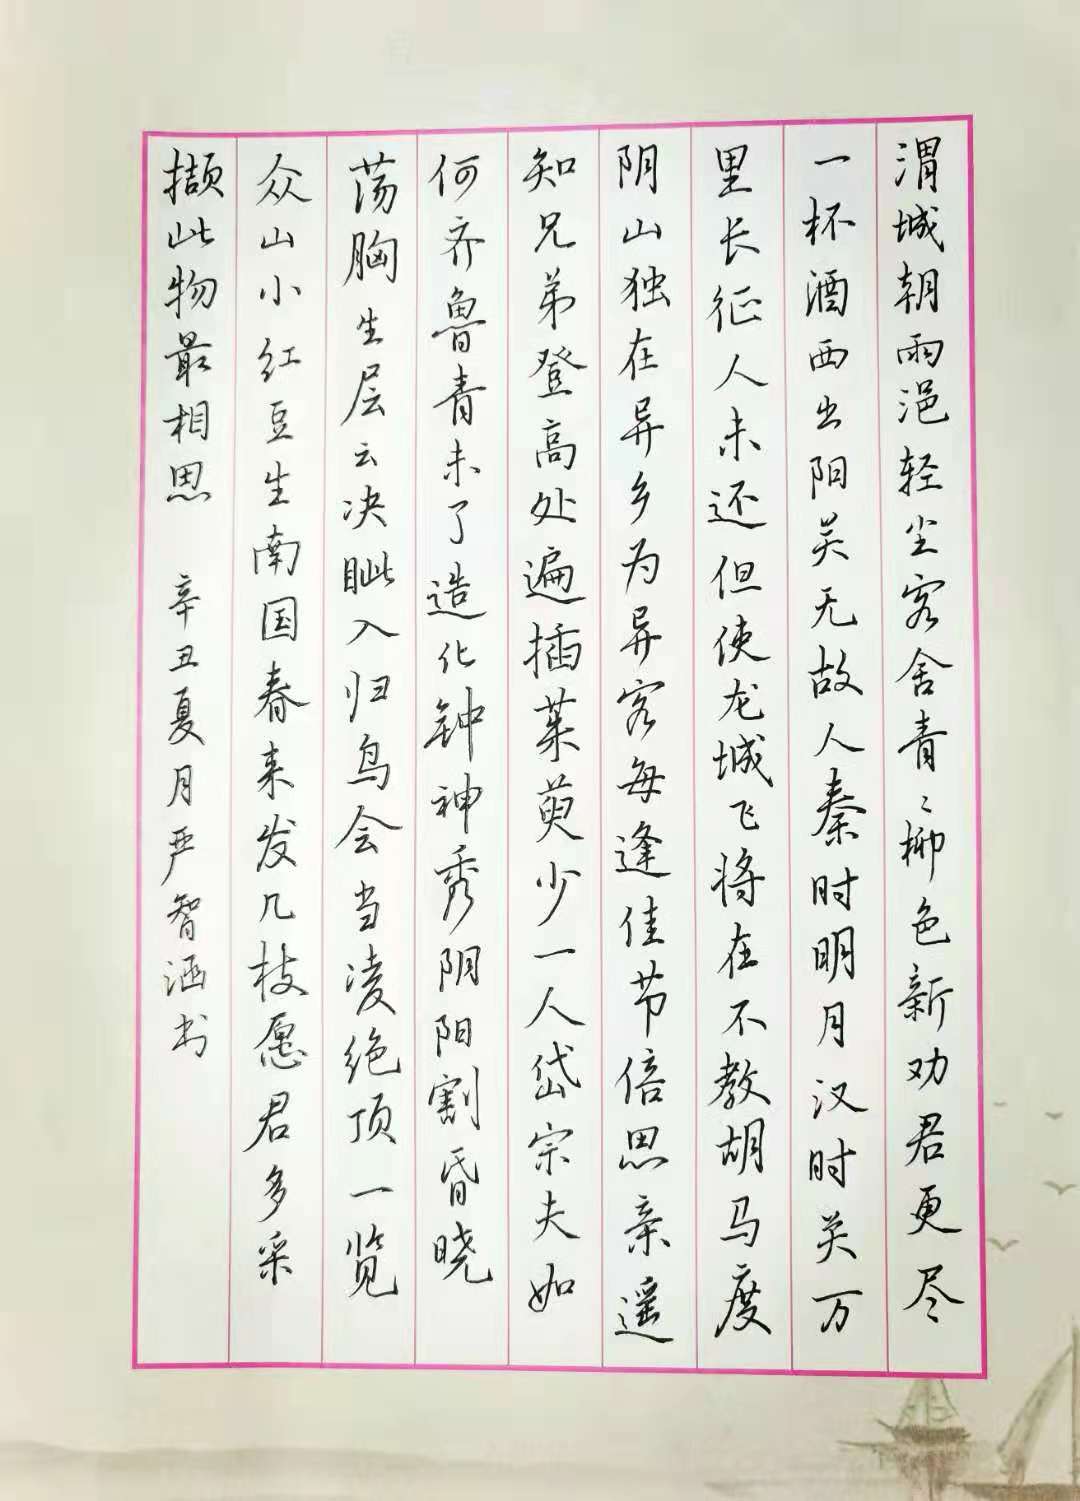 渭城朝雨浥轻尘客舍青〻柳色新劝君更尽
一杯酒西出阳关无故人秦时明月汉时关万
里长征人未还但使龙城飞将在不教胡马度
阴山独在异乡为异客每逢佳节倍思亲遥
知兄弟登高处遍插茱萸少一人岱宗夫如
何齐鲁青未了造化钟神秀阴阳割昏晓
荡胸生层云决眦入归鸟会当凌绝顶一览
众山小红豆生南国春来发几枝愿君多采
撷此物最相思 辛丑夏月严智涵书